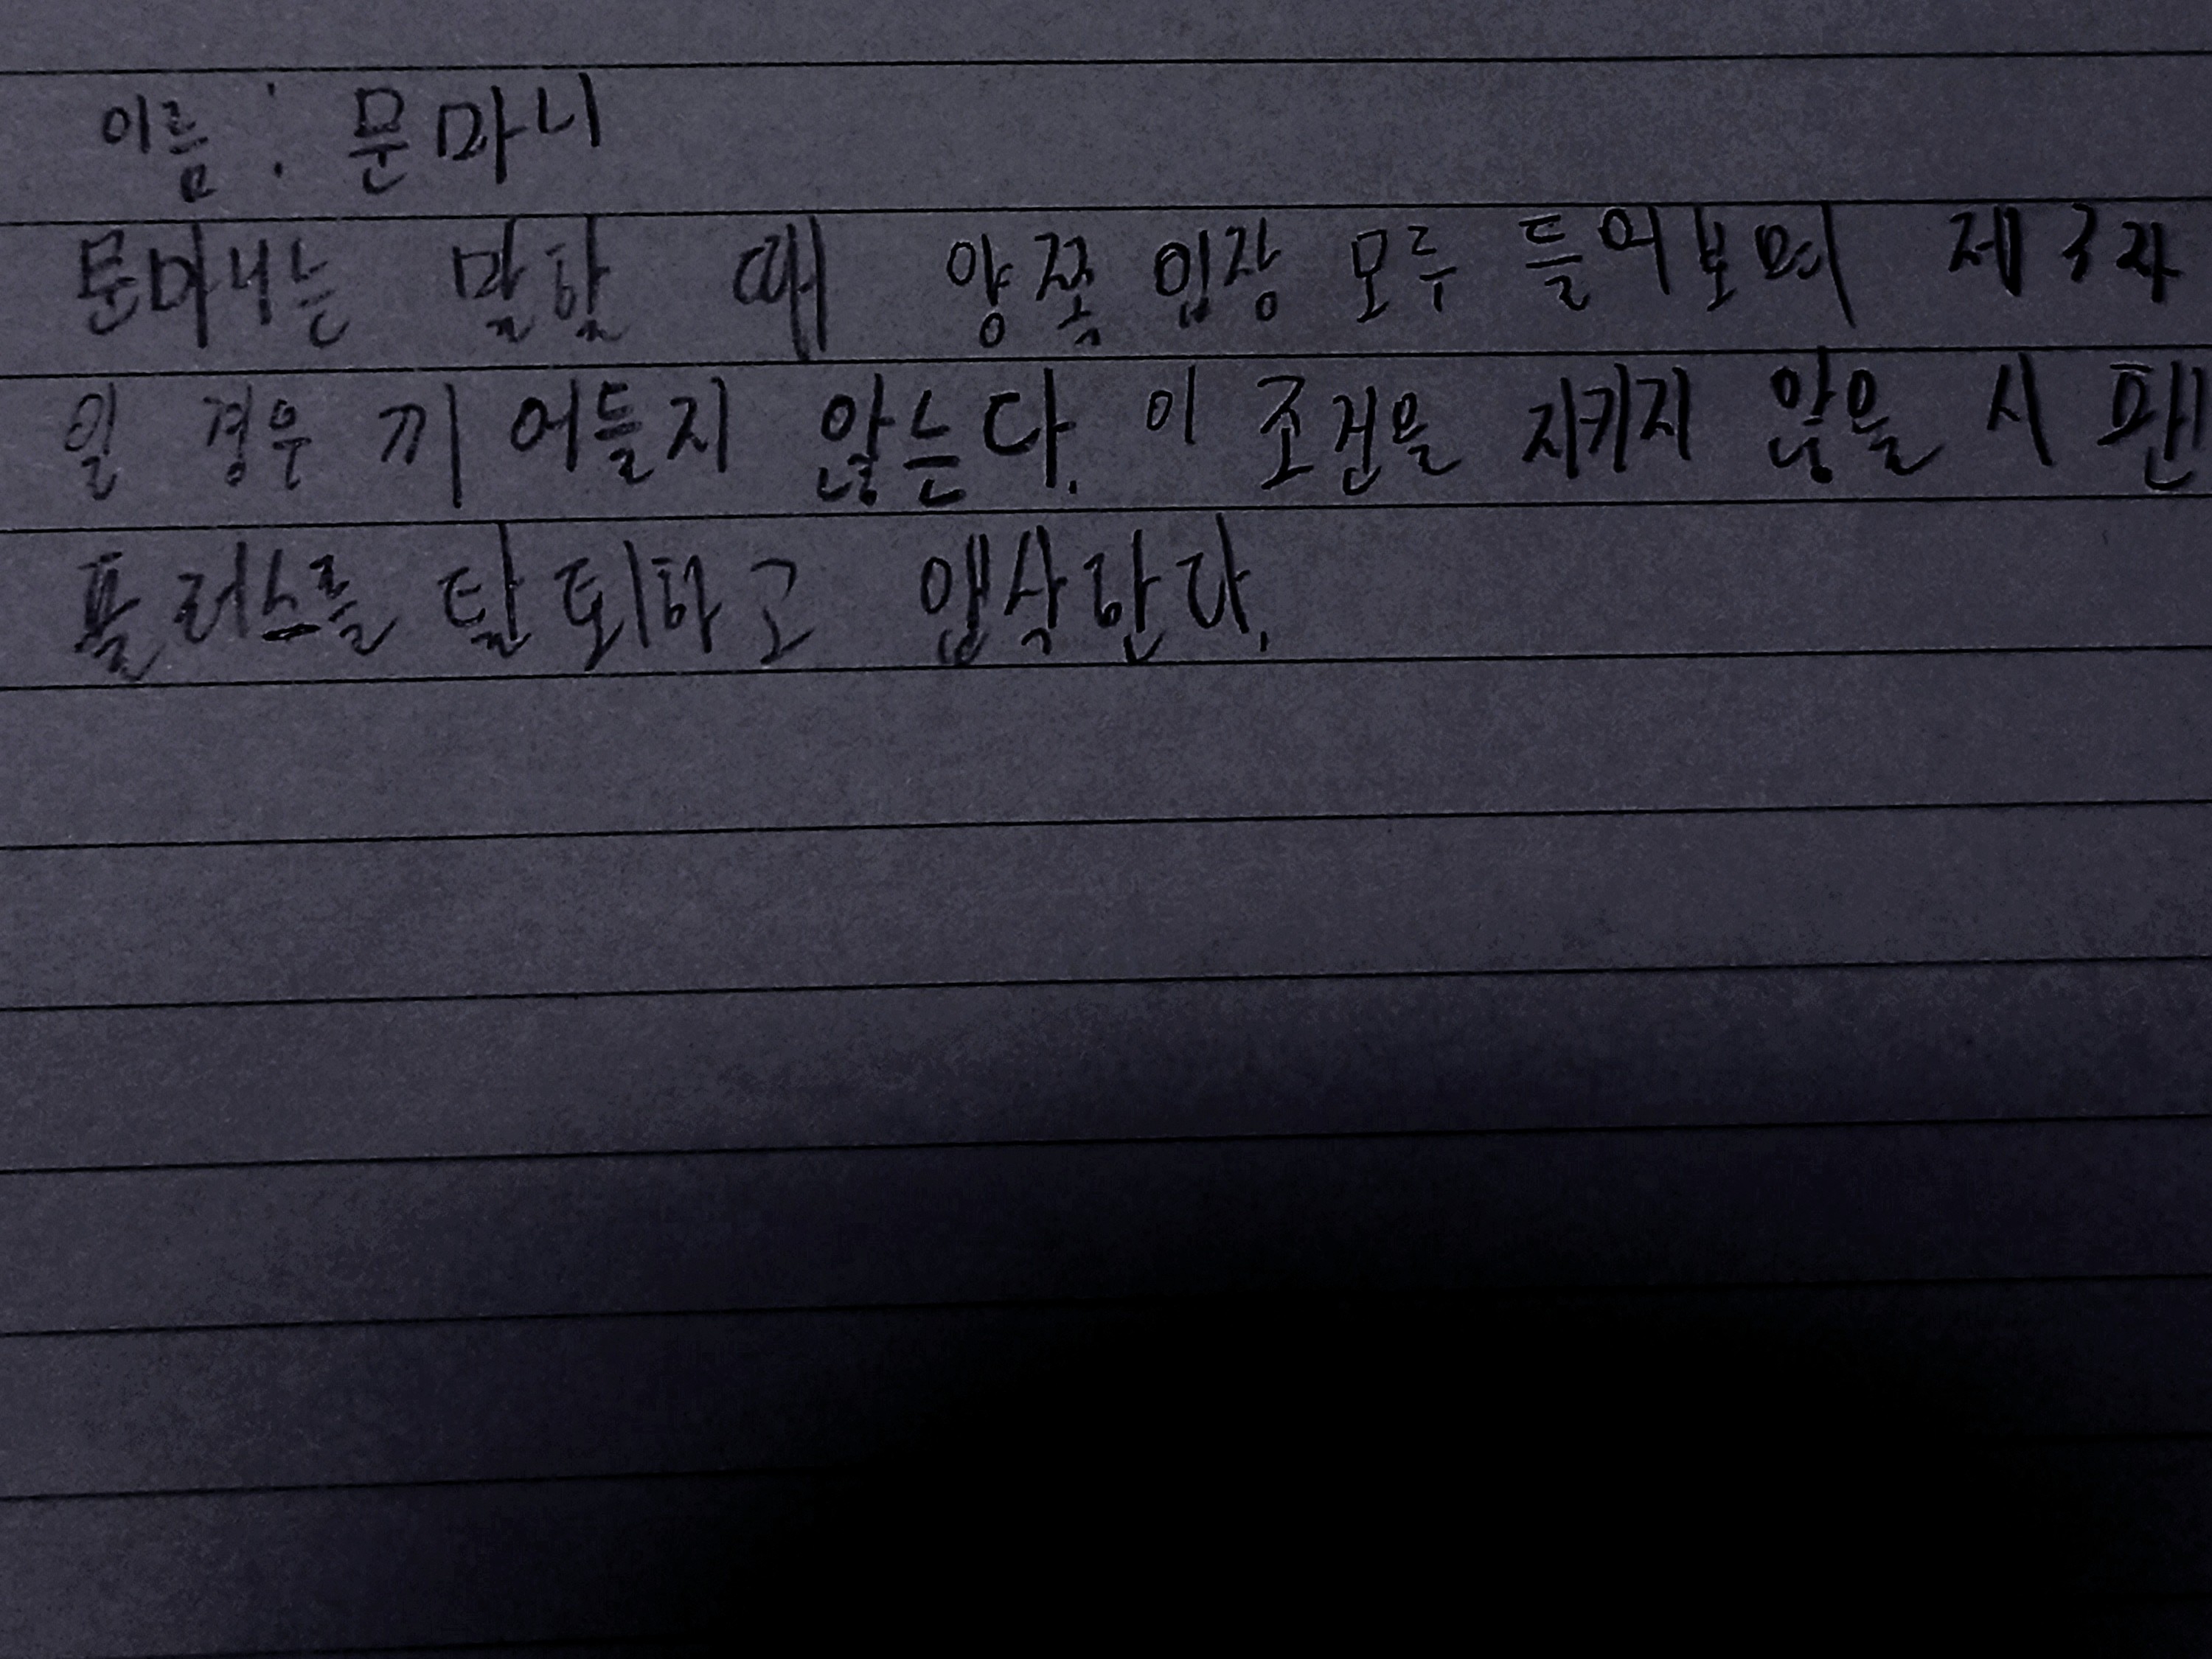 이름 : 문마니
문마니는 말할 때 양쪽 입장 모두 들어보며 제 3자
일 경우 끼어들지 않는다. 이 조건을 지키지 않을 시 팬
플러스를 탈퇴하고 앱삭한다.